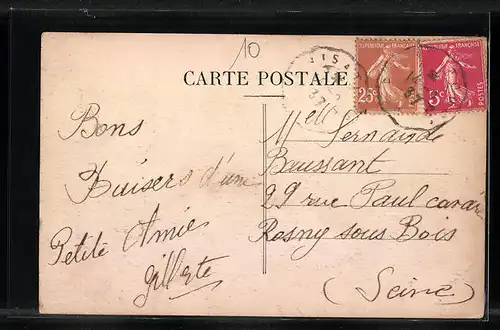 10
CARTE POSTALE
RÉPUBLIQUE FRANÇAISE
25c
RÉPUBLIQUE FRANÇAISE
5c
POSTES
Bons
Baisers d'une
Petite Amie
Gilberte
Melle Fernande
Baussant
29 rue Paul
Rosny sous Bois
(Seine)